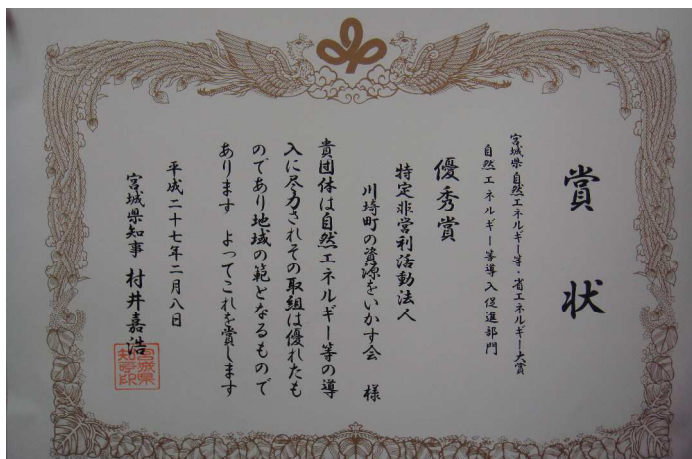 賞状
宮城県自然エネルギー等・省エネルギー大賞
自然エネルギー等導入促進部門
優秀賞
特定非営利活動法人
川崎町の資源をいかす会 様
貴団体は自然エネルギー等の導
入に尽力されその取組は優れたも
のであり地域の範となるもので
あります よってこれを賞します
平成二十七年二月八日
宮城県知事 村井嘉浩
宮城県
知事印